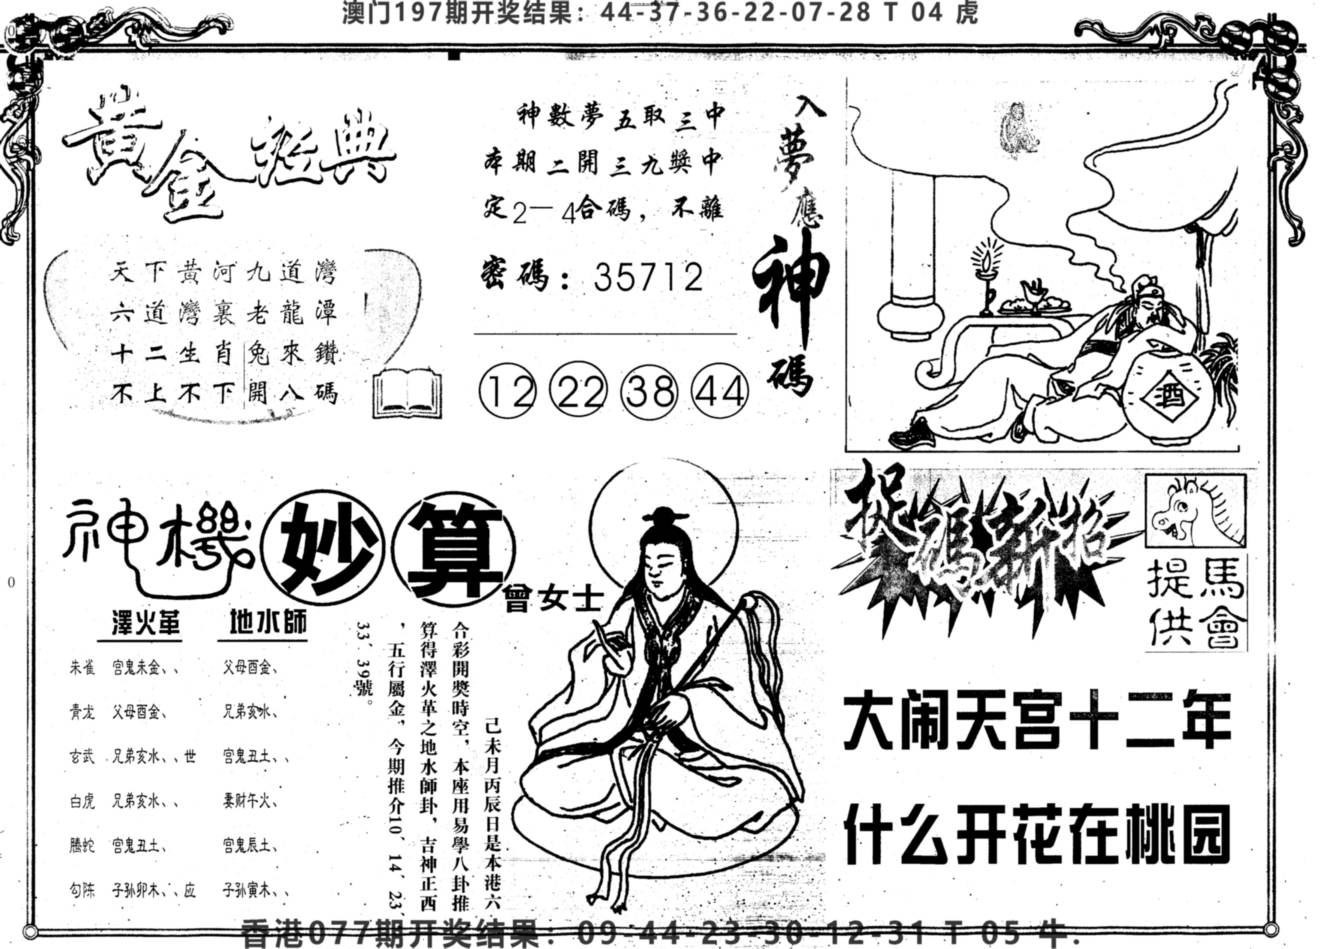 澳门197期开奖结果：44-37-36-22-07-28 T 04 虎
黃金經典
天下黃河九道灣
六道灣裏老龍潭
十二生肖兔來鑽
不上不下開八碼
神數夢五取三中
本期二開三九獎中
定2—4合碼，不離
密碼：35712
12 22 38 44
入夢應神碼
酒
神機妙算
曾女士
澤火革 地水師
朱雀 宫鬼未金、、 父母酉金、
青龙 父母酉金、 兄弟亥水、
玄武 兄弟亥水、、世 宫鬼丑土、、
白虎 兄弟亥水、、 妻财午火、
腾蛇 宫鬼丑土、 宫鬼辰土、
勾陈 子孙卯木、、应 子孙寅木、、
己未月丙辰日是本港六
合彩開獎時空，本座用易學八卦推
算得澤火革之地水師卦，吉神正西
，五行屬金，今期推介10、14、23、
33、39號。
捉碼新招
馬會
提供
大闹天宫十二年
什么开花在桃园
香港077期开奖结果：09-44-23-30-12-31 T 05 牛.